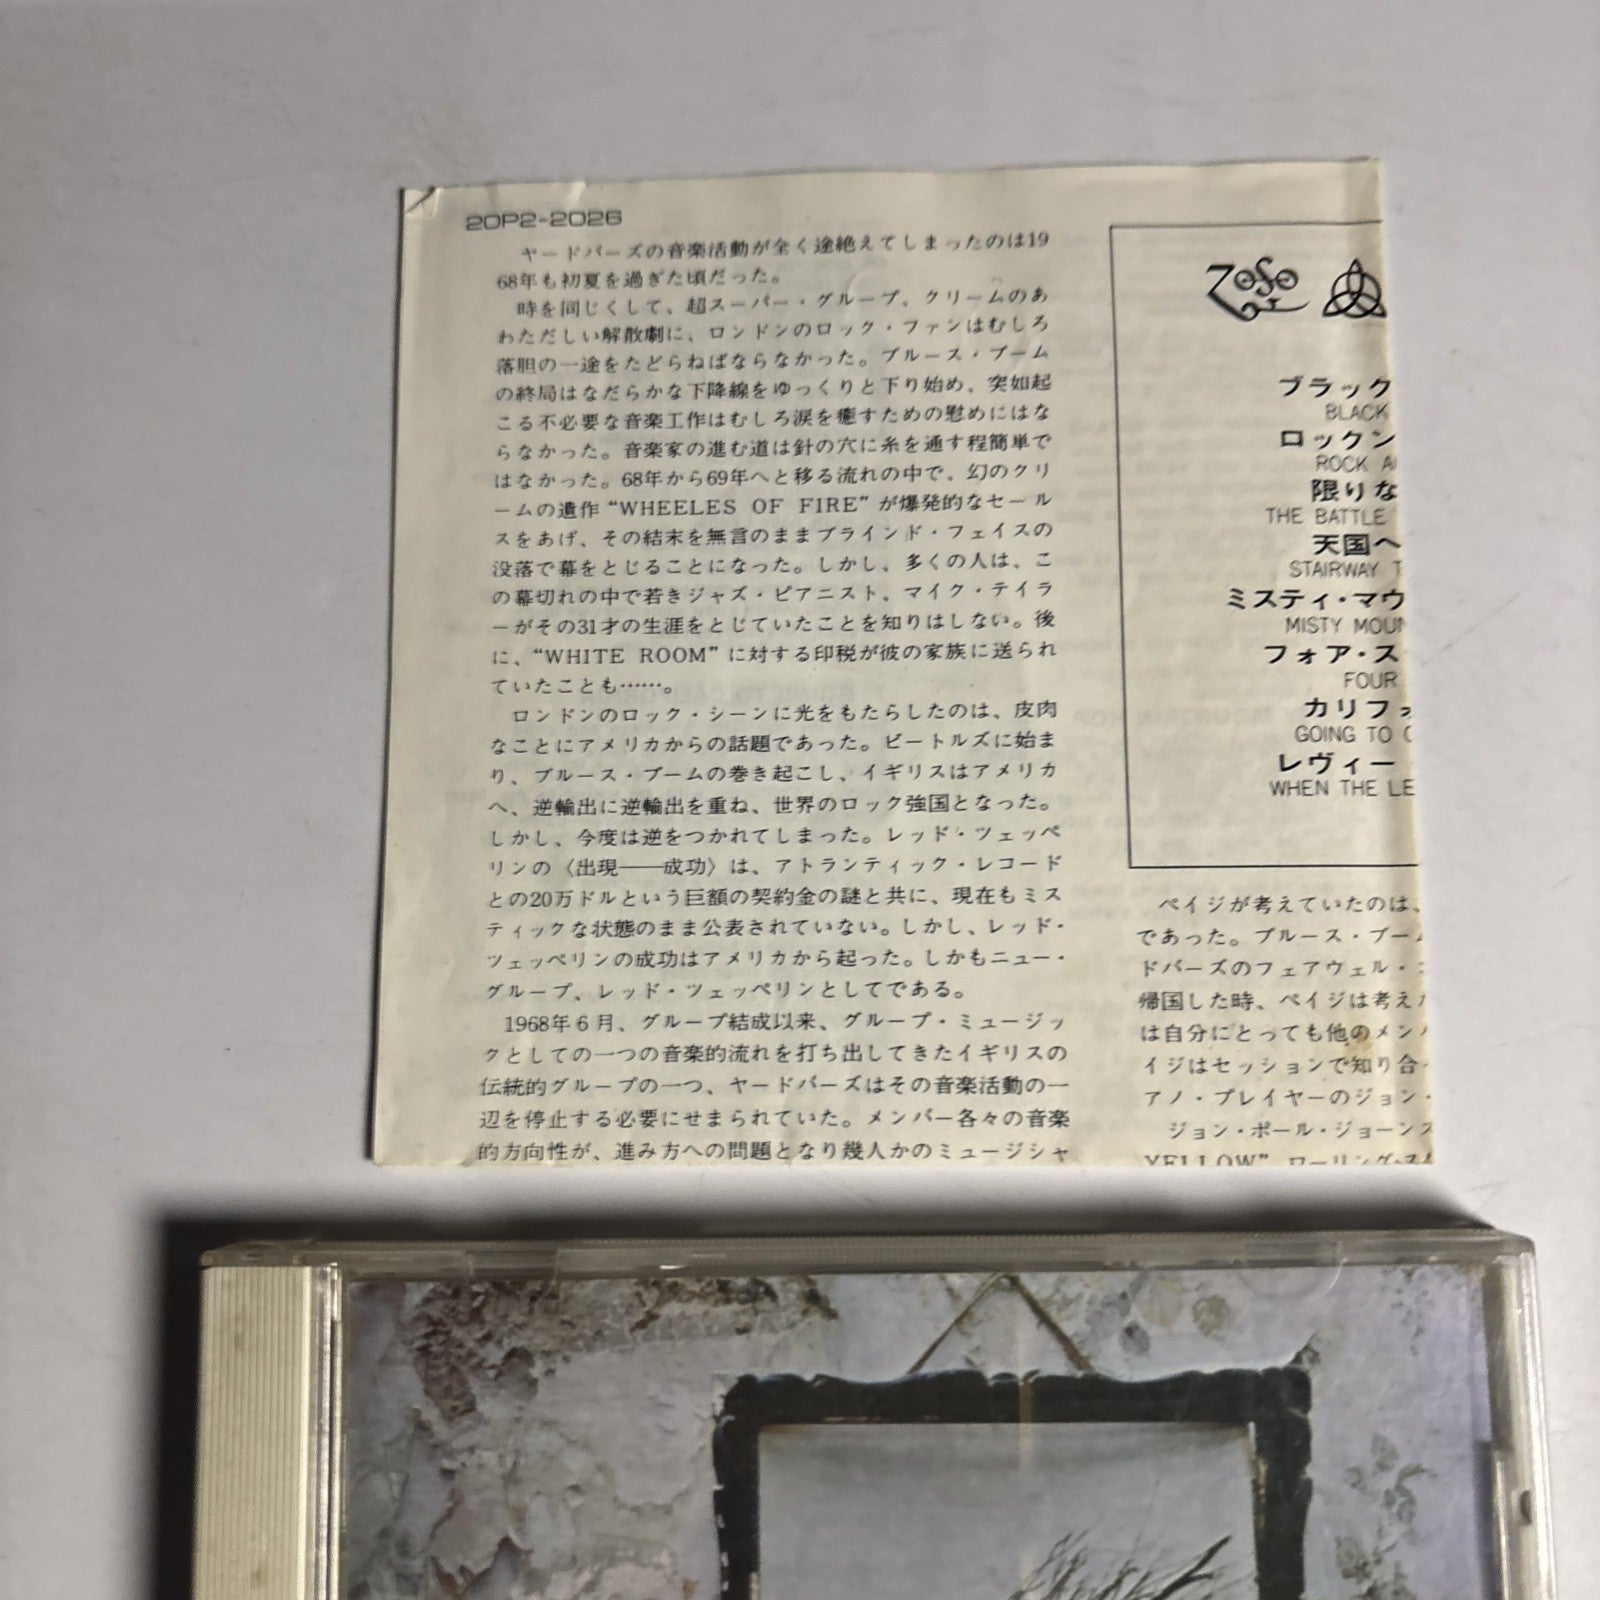 20P2-2026
ヤードバーズの音楽活動が全く途絶えてしまったのは19
68年も初夏を過ぎた頃だった。
時を同じくして、超スーパー・グループ、クリームのあ
わただしい解散劇に、ロンドンのロック・ファンはむしろ
落胆の一途をたどらねばならなかった。ブルース・ブーム
の終局はなだらかな下降線をゆっくりと下り始め、突如起
こる不必要な音楽工作はむしろ涙を癒すための慰めにはな
らなかった。音楽家の進む道は針の穴に糸を通す程簡単で
はなかった。68年から69年へと移る流れの中で、幻のクリ
ームの遺作“WHEELES OF FIRE”が爆発的なセール
スをあげ、その結末を無言のままブラインド・フェイスの
没落で幕をとじることになった。しかし、多くの人は、こ
の幕切れの中で若きジャズ・ピアニスト、マイク・テイラ
ーがその31才の生涯をとじていたことを知りはしない。後
に、“WHITE ROOM”に対する印税が彼の家族に送られ
ていたことも……。
ロンドンのロック・シーンに光をもたらしたのは、皮肉
なことにアメリカからの話題であった。ビートルズに始ま
り、ブルース・ブームの巻き起こし、イギリスはアメリカ
へ、逆輸出に逆輸出を重ね、世界のロック強国となった。
しかし、今度は逆をつかれてしまった。レッド・ツェッペ
リンの〈出現――成功〉は、アトランティック・レコード
との20万ドルという巨額の契約金の謎と共に、現在もミス
ティックな状態のまま公表されていない。しかし、レッド・
ツェッペリンの成功はアメリカから起った。しかもニュー・
グループ、レッド・ツェッペリンとしてである。
1968年6月、グループ結成以来、グループ・ミュージッ
クとしての一つの音楽的流れを打ち出してきたイギリスの
伝統的グループの一つ、ヤードバーズはその音楽活動の一
辺を停止する必要にせまられていた。メンバー各々の音楽
的方向性が、進み方への問題となり幾人かのミュージシャ
ブラック
BLACK
ロックン
ROCK A
限りな
THE BATTLE
天国へ
STAIRWAY T
ミスティ・マウ
MISTY MOUN
フォア・ス
FOUR
カリフォ
GOING TO C
レヴィー
WHEN THE LE
ペイジが考えていたのは、
であった。ブルース・ブー
ドバーズのフェアウェル・
帰国した時、ペイジは考え
は自分にとっても他のメン
イジはセッションで知り合
アノ・プレイヤーのジョン・
ジョン・ポール・ジョーンズ
YELLOW” ローリング・